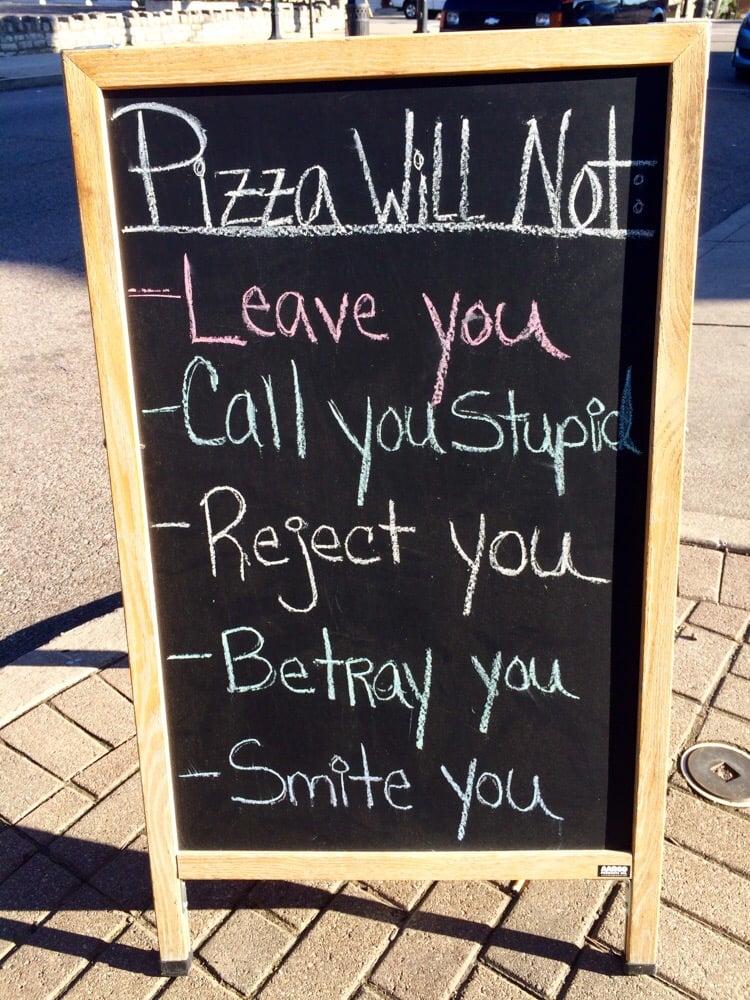 Pizza Will Not:
- Leave you
- Call you Stupid
- Reject you
- Betray you
- Smite you
AARCO